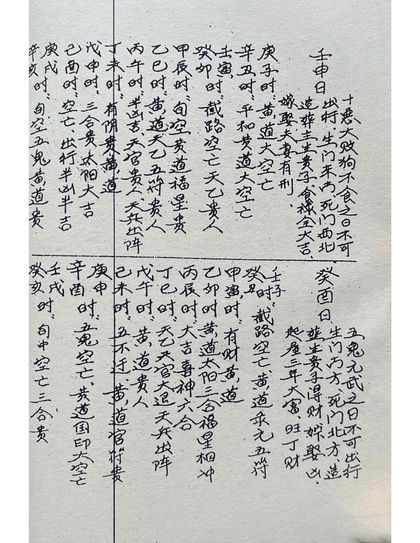 壬申日
十恶大败狗不食之日不可
出行、生门东南死门西北
造葬主生贵子食禄全大吉、
嫁娶夫妻有刑、
庚子时、黄道大空亡
辛丑时、平和黄道大空亡
壬寅时、
癸卯时、截路空亡天乙贵人
甲辰时、旬空黄道福星贵
乙巳时、黄道天乙五符贵人
丙午时、半凶吉天官贵人天兵出阵
丁未时、有阴贵黄道
戊申时、三合贵太阳大吉
己酉时、空亡出行半凶半吉
庚戌
辛亥时、旬空五鬼黄道贵
癸酉日
五鬼元武之日不可出行
生门南方、死门北方、造
葬主贵子得财、嫁娶凶、
起屋三年大富旺丁财
壬子
癸丑时、截路空亡、黄道禾元五符
甲寅时、有财黄道
乙卯时、黄道太阳三合福星相冲
丙辰时、大吉喜神六合
丁巳时、天乙天官大退天兵出阵
戊午时、黄道贵人
己未时、五不过黄道官符贵
庚申
辛酉时、五鬼空亡、黄道国印大空亡
壬戌
癸亥时、旬中空亡三合贵